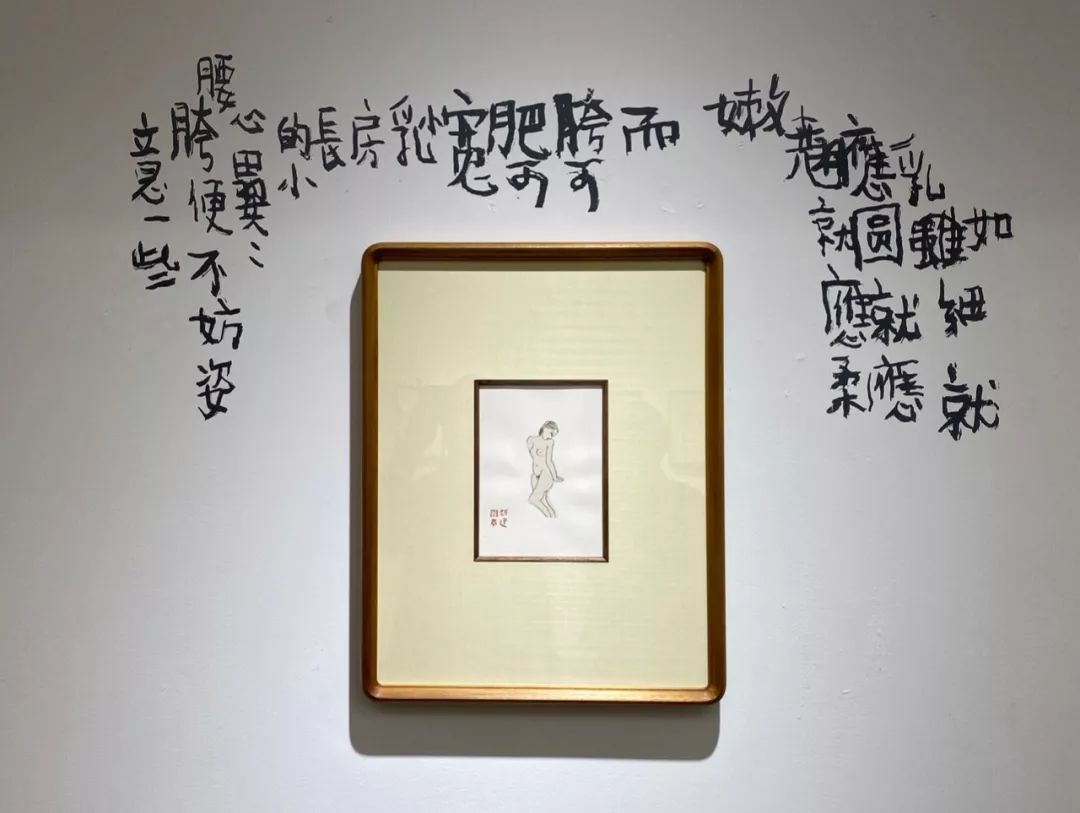 如細就
乳雖
應圓就應
就應柔
嫩
而
胯可
肥可
寬
乳
房
長
的小
心翼
腰胯便不妨姿
意一些